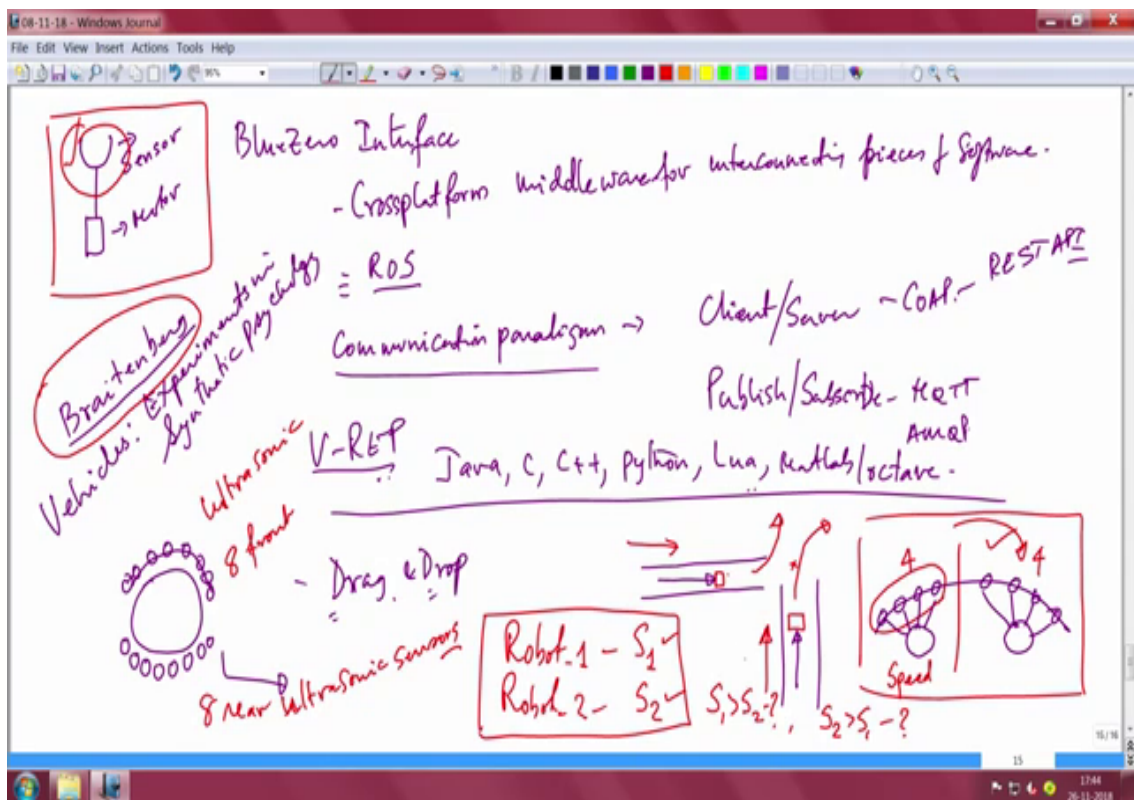 08-11-18 - Windows Journal
File Edit View Insert Actions Tools Help
95%
Sensor
Motor
BlueZero Interface
- Crossplatform middleware for interconnecting pieces of Software.
= ROS
Communication paradigm → Client/Server - COAP - REST API
Publish/Subscribe - MQTT
AMQP
Braitenberg
Vehicles: Experiments in
Synthetic Psychology
V-REP Java, C, C++, Python, Lua, Matlab/octave.
Ultrasonic
8 front
- Drag & Drop
8 rear Ultrasonic sensors
Robot_1 - S1 ✓
Robot_2 - S2 ✓
S1>S2-?, S2>S1-?
4
4
Speed
15/16
15
17:44
26-11-2018